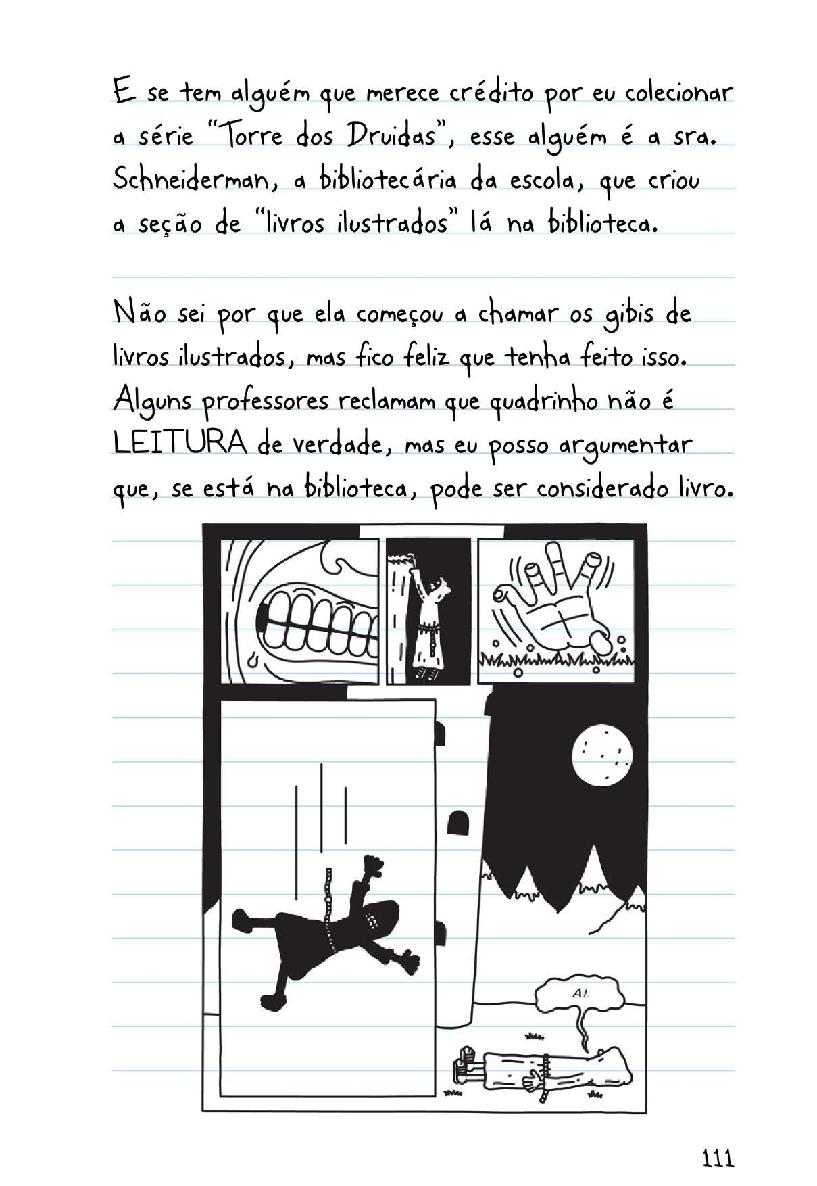 E se tem alguém que merece crédito por eu colecionar
a série "Torre dos Druidas", esse alguém é a sra.
Schneiderman, a bibliotecária da escola, que criou
a seção de "livros ilustrados" lá na biblioteca.
Não sei por que ela começou a chamar os gibis de
livros ilustrados, mas fico feliz que tenha feito isso.
Alguns professores reclamam que quadrinho não é
LEITURA de verdade, mas eu posso argumentar
que, se está na biblioteca, pode ser considerado livro.
AI.
111